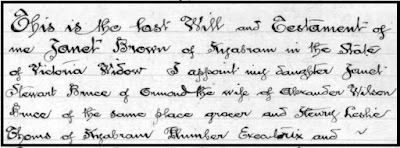 This is the last Will and Testament of
me Janet Brown of Kyabram in the State
of Victoria Widow I appoint my daughter Janet
Stewart Bruce of Ormond the wife of Alexander Wilson
Bruce of the same place grocer and Henry Leslie
Thoms of Kyabram Plumber Executrix and